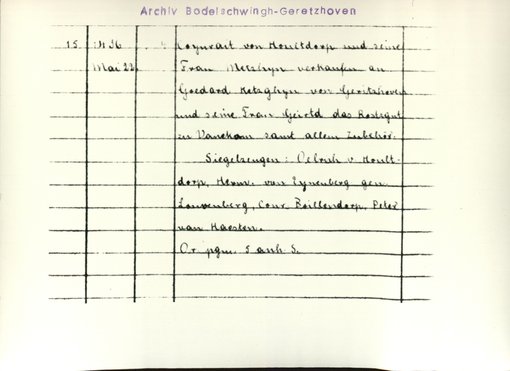 Archiv Bodelschwingh-Geretzhoven
15. 1436 Coynrait von Houltdorp und seine
Mai 22. Frau Metzhyn verkaufen an
Goedard Ketzghyn von Geritzhoven
und seine Frau Geirtd das Rostzgut
zu Vanekom samt allem Zubehör.
Siegelzeugen: Oelrich v. Hoult-
dorp, Herm. van Eynenberg gen.
Louvenberg, Conr. Roillendorp, Peter
van Haesten.
Or. pgm. 5 anh. S.